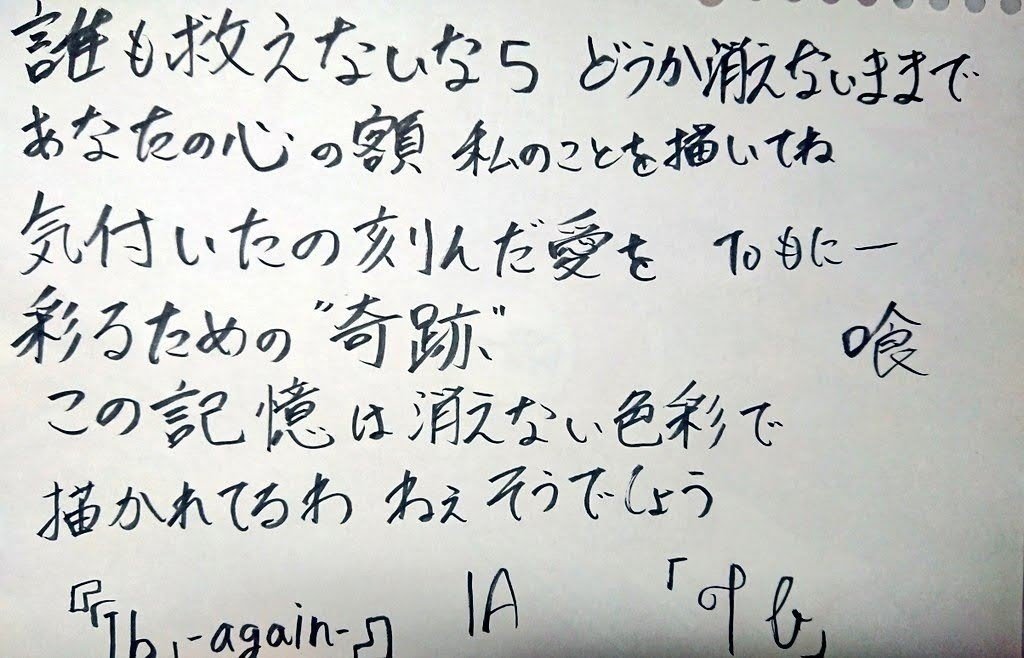 誰も救えないなら どうか消えないままで
あなたの心の額 私のことを描いてね
気付いたの刻んだ愛を ともにー
彩るための"奇跡"
喰
この記憶は消えない色彩で
描かれてるわ ねぇ そうでしょう
『「Ib」-again-』 IA